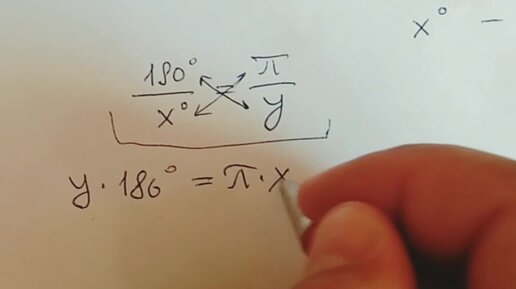 x° –
180° / x° = π / y
y · 180° = π · x